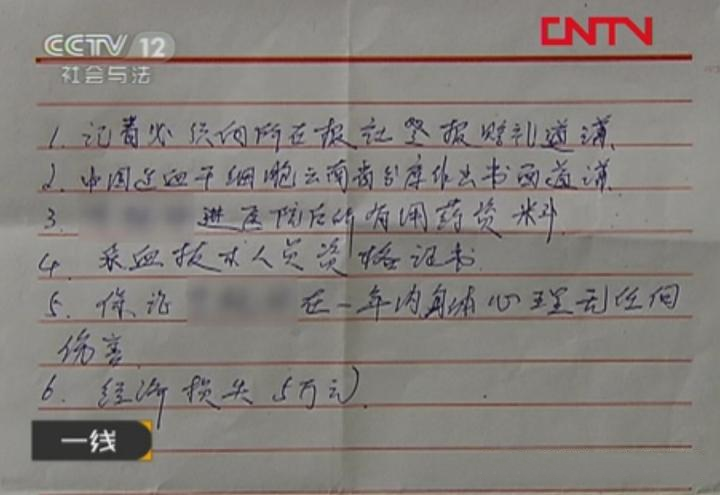 CCTV 12
CNTN
社会与法
1. 记者必须向所在报社登报赔礼道谦.
2. 中国造血干细胞云南省分库作出书面道谦
3. 进医院后所有用药资料
4. 采血技术人员资格证书
5. 保证 在一年内身体心理无任何
伤害
6. 经济损失5万元
一线